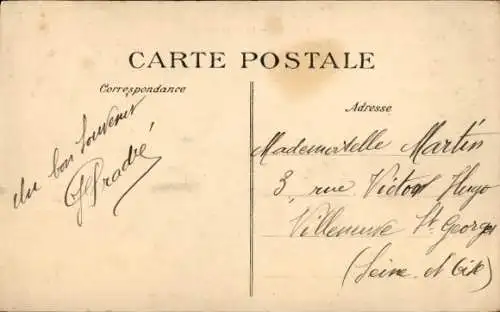 CARTE POSTALE
Correspondance
Un bon souvenir
Adresse
Mademoiselle Martin
3, rue Victor Hugo
Villeneuve St Georges
(Seine et Oise)